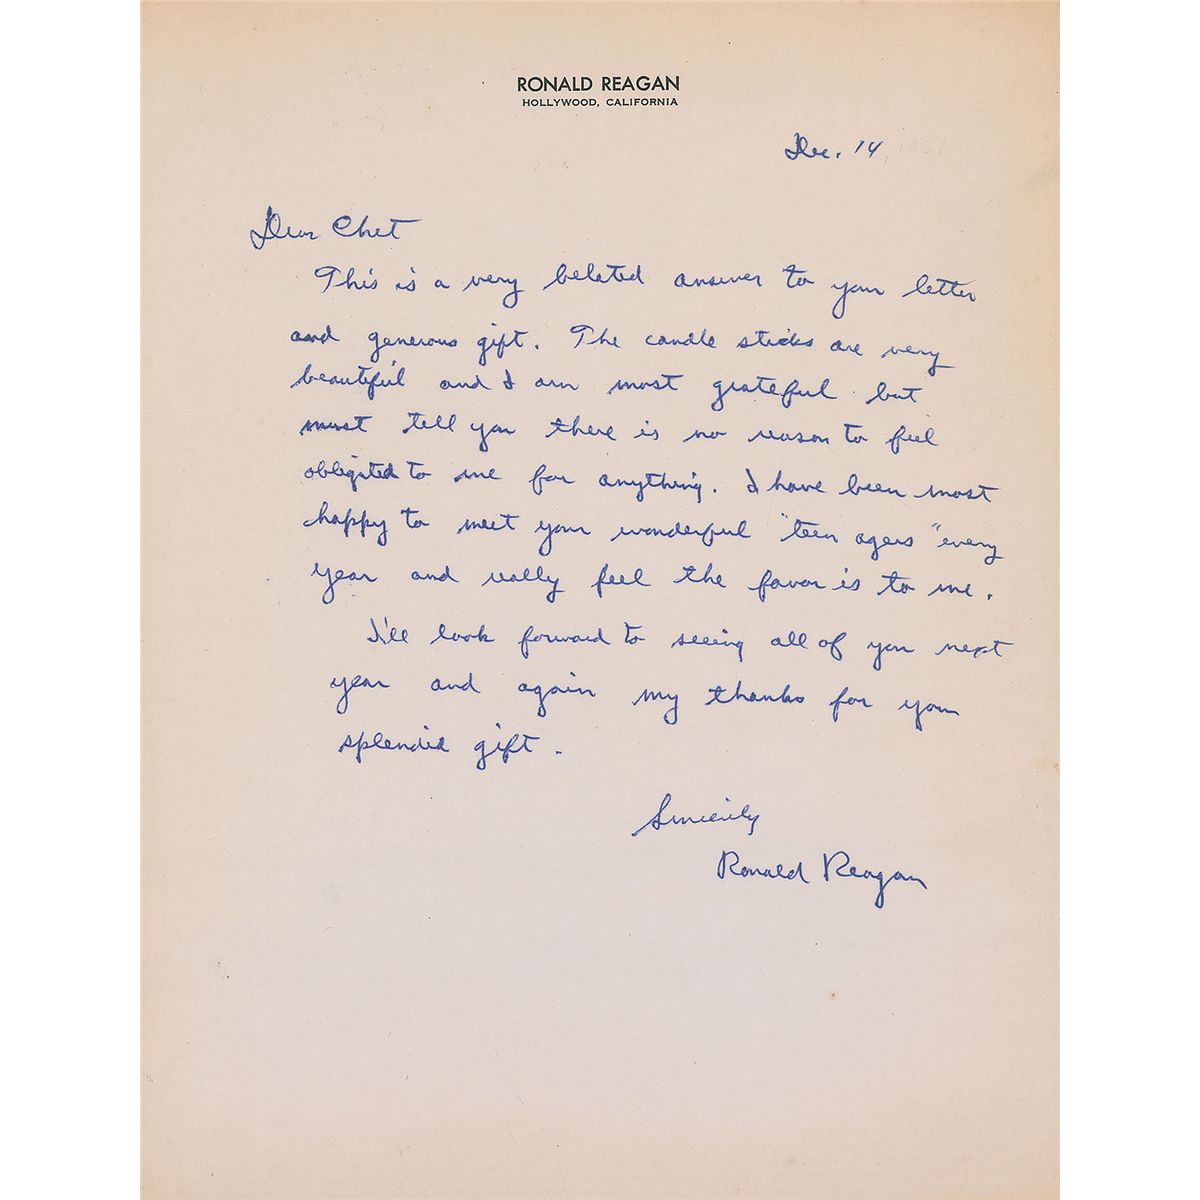 RONALD REAGAN
HOLLYWOOD, CALIFORNIA
Dec. 14, 1951
Dear Chet
This is a very belated answer to your letter
and generous gift. The candle sticks are very
beautiful and I am most grateful but
must tell you there is no reason to feel
obligated to me for anything. I have been most
happy to meet your wonderful "teen agers" every
year and really feel the favor is to me.
I'll look forward to seeing all of you next
year and again my thanks for your
splendid gift.
Sincerely
Ronald Reagan